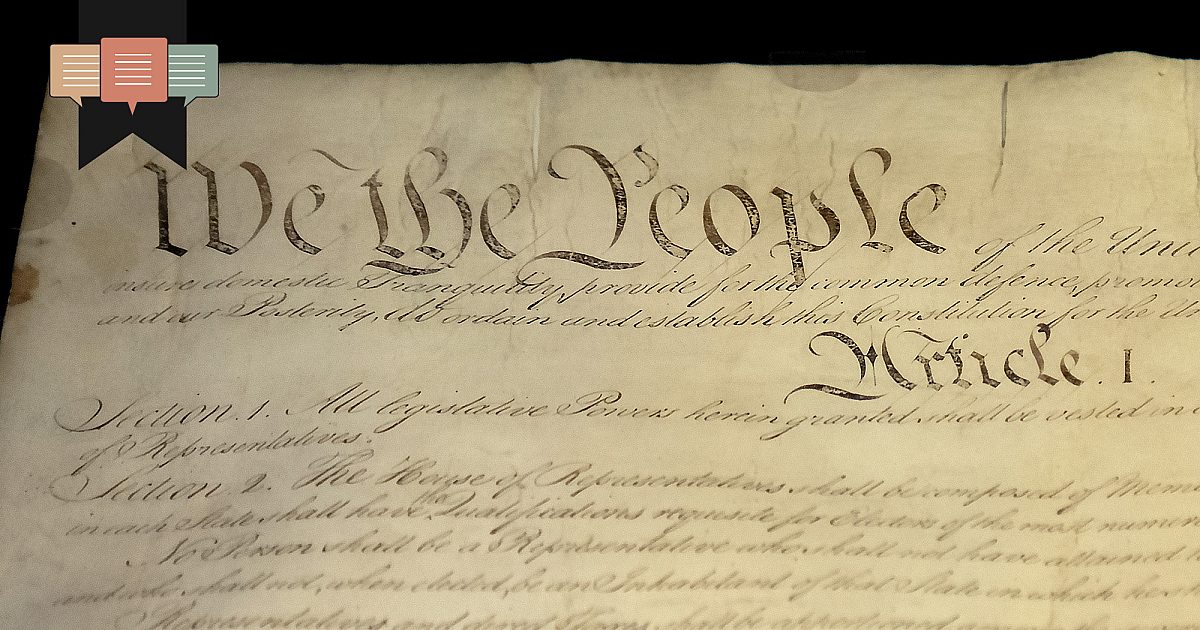 We the People of the Uni
nsure domestic Tranquility, provide for the common defence, promo
and our Posterity, do ordain and establish this Constitution for the Un
Article. I.
Section. 1. All legislative Powers herein granted shall be vested in a
of Representatives.
Section. 2. The House of Representatives shall be composed of Mem
in each State shall have the Qualifications requisite for Electors of the most numer
No Person shall be a Representative who shall not have attained t
and who shall not, when elected, be an Inhabitant of that State in which he sh
Representatives and direct Taxes shall be apportioned